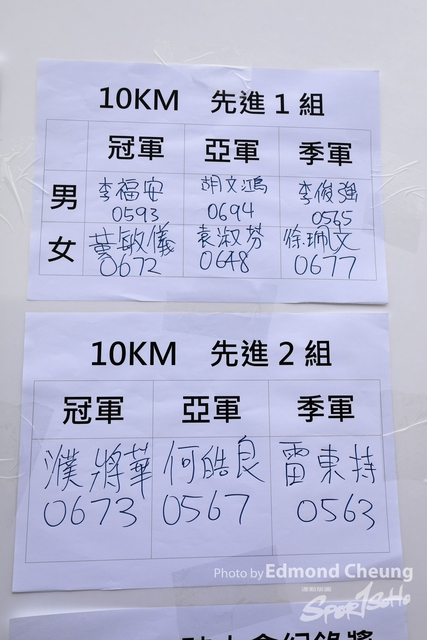 10KM 先進1組
冠軍 亞軍 季軍
男 李福安 胡文鴻 李俊強
0593 0694 0565
女 葉敏儀 袁淑芬 徐珮文
0672 0648 0677
10KM 先進2組
冠軍 亞軍 季軍
濮將華 何皓良 雷東持
0673 0567 0563
Photo by Edmond Cheung
運動版圖
SportSoHo